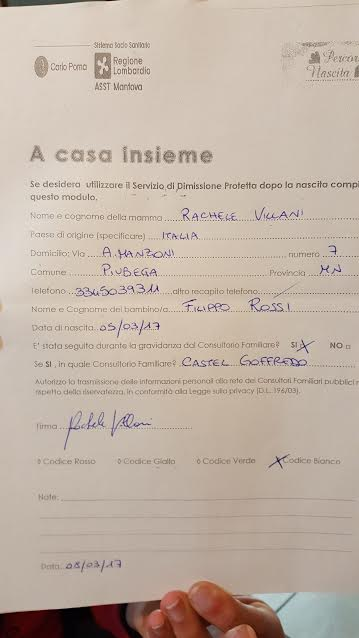 Sistema Socio Sanitario
Carlo Poma
Regione
Lombardia
ASST Mantova
Percor
Nascita
A casa insieme
Se desidera utilizzare il Servizio di Dimissione Protetta dopo la nascita compi
questo modulo.
Nome e cognome della mamma RACHELE VILLANI
Paese di origine (specificare) ITALIA
Domicilio: Via A. MANZONI numero 7
Comune PIUBEGA Provincia MN
Telefono 3345039311 altro recapito telefono
Nome e Cognome del bambino/a FILIPPO ROSSI
Data di nascita 05/03/17
E' stata seguita durante la gravidanza dal Consultorio Familiare? SI X NO
Se SI, in quale Consultorio Familiare? CASTEL GOFFREDO
Autorizzo la trasmissione delle informazioni personali alla rete dei Consultori Familiari pubblici
rispetto della riservatezza, in conformità alla Legge sulla privacy (D.L. 196/03).
Firma Rachele Villani
◊ Codice Rosso ◊ Codice Giallo ◊ Codice Verde X Codice Bianco
Note:
Data: 08/03/17